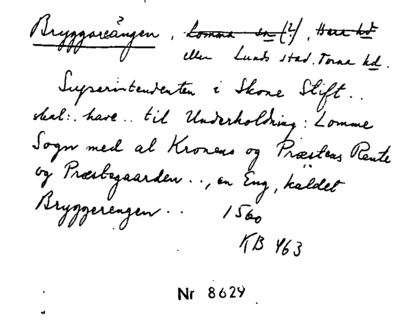 Bryggareängen, Lomma sn (?), Hara hd
eller Lunds stad. Torna hd.
Superintendenten i Skone Stift..
skal: have.. til Underholdning: Lomme
Sogn med al Kronens og Præstens Rente
og Præstegaarden.., en Eng, kaldet
Bryggerengen.. 1560
KB 463
Nr 8629